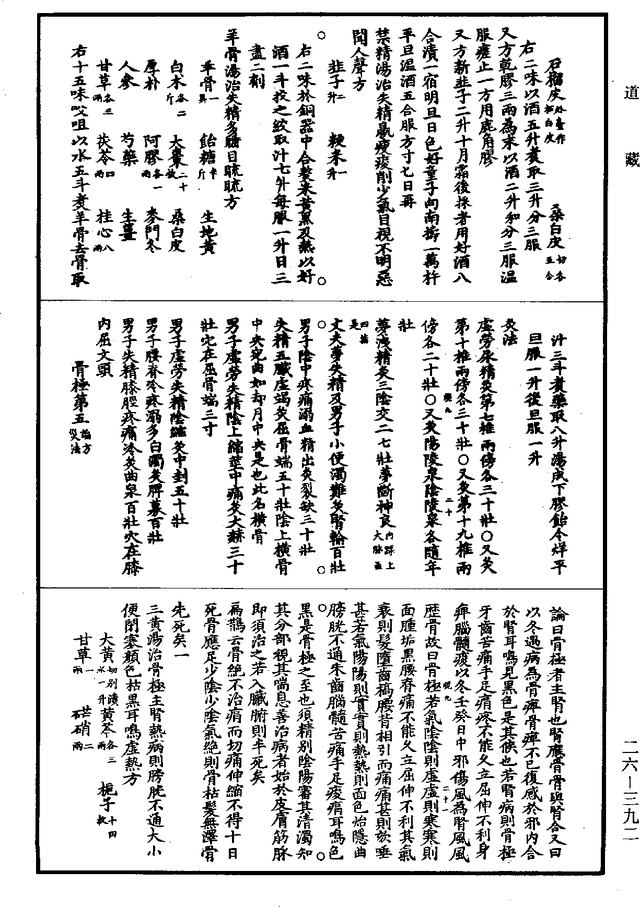 道藏
石榴皮外臺作柘白皮 桑白皮切各五合
右二味以酒五升煮取三升分三服
又方乾膠三兩為末以酒二升和分三服温
服瘥止一方用鹿角膠
又方新韭子二升十月霜後採者用好酒八
合漬一宿明旦日色好童子向南擣一萬杵
平旦温酒五合服方寸匕日再
禁精湯治失精羸瘦痠削少氣目視不明惡
聞人聲方
韭子二升 粳米一升
右二味於銅器中合熬米黄黑及熱以好
酒一斗投之絞取汁七升每服一升日三
盡二劑
羊骨湯治失精多睡目䀮䀮方
羊骨一具 飴糖半斤 生地黄
白术各二斤 大棗二十枚 桑白皮
厚朴 阿膠各一兩 麥門冬
人參 芍藥 生薑
甘草各三兩 茯苓四兩 桂心八兩
右十五味㕮咀以水五斗煮羊骨去骨取
汁三斗煮藥取八升湯成下膠飴令烊平
旦服一升後旦服一升
灸法
虚勞尿精灸第七椎兩傍各三十壯○又灸
第十椎兩傍各三十壯○又灸第十九椎兩
傍各二十壯○又灸陽陵泉陰陵泉各隨年
壯
夢洩精灸三陰交二七壯夢斷神良内踝上大脉並四指是
丈夫夢失精及男子小便濁難灸腎輸百壯
男子陰中疼痛溺血精出灸列缺三十壯
失精五臟虚竭灸屈骨端五十壯陰上横骨
中央宛曲如却月中央是也此名横骨
男子虚勞失精陰上縮莖中痛灸大赫三十
壯穴在屈骨端三寸
男子虚勞失精陰縮灸中封五十壯
男子腰脊冷疼溺多白濁灸脾募百壯
男子失精膝脛疼痛冷灸曲泉百壯穴在膝
内屈文頭
骨極第五論方灸法
論曰骨極者主腎也腎應骨骨與腎合又曰
以冬遇病為骨痺骨痺不已復感於邪内舍
於腎耳鳴見黑色是其候也若腎病則骨極
牙齒苦痛手足㾓疼不能久立屈伸不利身
痺腦髓痠以冬壬癸日中邪傷風為腎風風
歷骨故曰骨極若氣陰陰則虚虚則寒寒則
面腫垢黑腰脊痛不能久立屈伸不利其氣
衰則髮墮齒槁腰背相引而痛痛甚則欬唾
甚若氣陽陽則實實則熱熱則面色炲隱曲
膀胱不通牙齒腦髓苦痛手足痠㾓耳鳴色
黑是骨極之至也須精别陰陽審其清濁知
其分部視其喘息善治病者始於皮膚筋脉
即須治之若入臟腑則半死矣
扁鵲云骨絶不治㾓而切痛伸縮不得十日
死骨應足少陰少陰氣絶則骨枯髮無澤骨
先死矣一
三黄湯治骨極主腎熱病則膀胱不通大小
便閉塞顔色枯黑耳鳴虚熱方
大黄切别漬水一升 黄芩各三兩 梔子十四枚
甘草一兩 芒硝二兩
二六—三九二